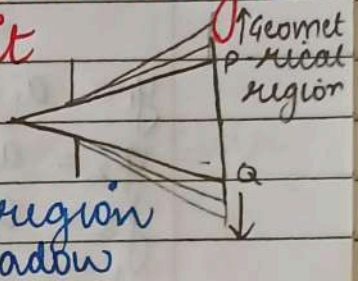 it
↑Geomet
P rical
region
Q
region
adow